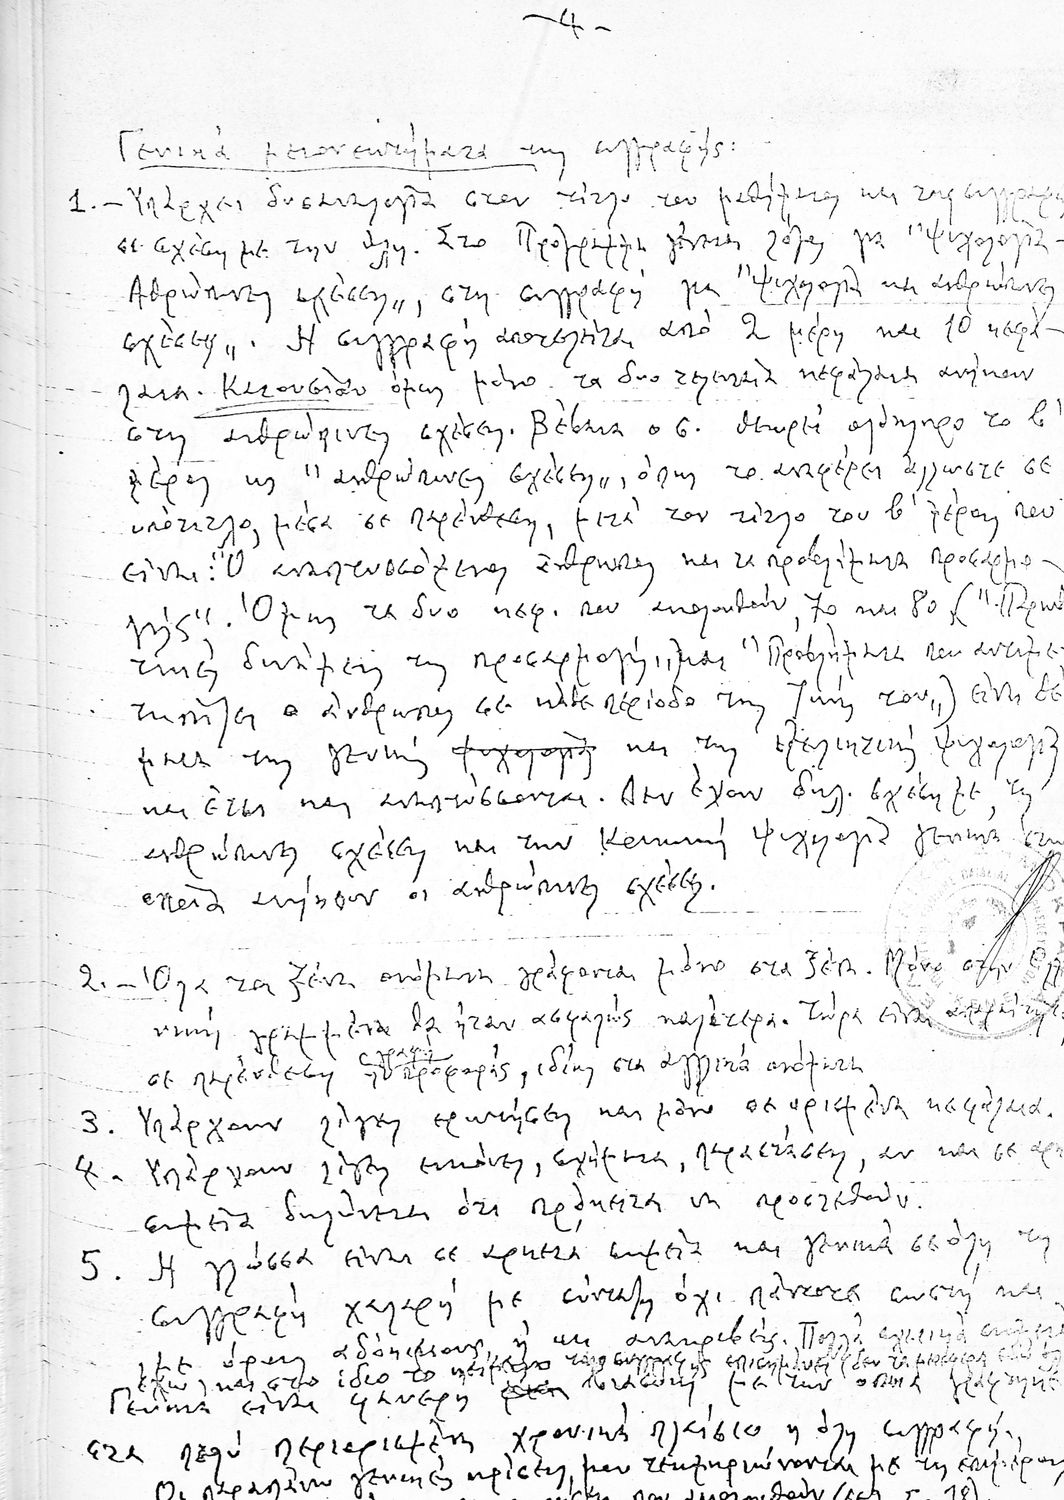 - 4 -
Γενικά μειονεκτήματα της συγγραφής:
1.- Υπάρχει δυσαναλογία στον τίτλο του μαθήματος και της συγγραφής
σε σχέση με την ύλη. Στο Πρόγραμμα γίνεται λόγος για "Ψυχολογία -
Ανθρώπινες σχέσεις", στη συγγραφή για "Ψυχολογία και ανθρώπινες
σχέσεις". Η συγγραφή αποτελείται από 2 μέρη και 10 κεφά-
λαια. Κατουσίαν όμως μόνο τα δυο τελευταία κεφάλαια ανήκουν
στις ανθρώπινες σχέσεις. Βέβαια ο σ. θεωρεί ολόκληρο το β'
μέρος ως "ανθρώπινες σχέσεις", όπως το αναφέρει άλλωστε σε
υπότιτλο, μέσα σε παρένθεση, μετά τον τίτλο του β' μέρους που
είναι: "Ο αναπτυσσόμενος άνθρωπος και τα προβλήματα προσαρμο-
γής". Όμως τα δυο κεφ. που ακολουθούν, 7ο και 8ο (
δυνάμεις της προσαρμογής" και "Προβλήματα που αντιμε-
τωπίζει ο άνθρωπος σε κάθε περίοδο της ζωής του") είναι θέ
ματα της γενικής ψυχολογίας και της εξελικτικής ψυχολογίας
και έτσι και αναπτύσσονται. Δεν έχουν δηλ. σχέση με τις
ανθρώπινες σχέσεις και την Κοινωνική Ψυχολογία γενικά στην
οποία ανήκουν οι ανθρώπινες σχέσεις.
2.- Όλα τα ξένα ονόματα γράφονται μόνο στα ξένα. Μόνο στην Ελλη
νική γραμμένα θα ήταν ασφαλώς καλύτερα. Τώρα είναι απαραίτητη
σε παρένθεση η γραφή της προφοράς, ιδίως στα αγγλικά ονόματα
3. Υπάρχουν λίγες ερωτήσεις και μόνο σε ορισμένα κεφάλαια.
4. Υπάρχουν λίγες εικόνες, σχήματα, παραστάσεις, αν και σε αρκ
σημεία δηλώνεται ότι πρόκειται να προστεθούν.
5. Η γλώσσα είναι σε αρκετά σημεία και γενικά σε όλη τη
συγγραφή χαλαρή με σύνταξη όχι πάντοτε σωστή και
με όρους αδόκιμους ή και ανακριβείς. Πολλά σχετικά σημεία
έχω και στο ίδιο το κείμενο της συγγραφής επισημάνει
Γενικά είναι φανερή η βιασύνη με την οποία γράφτηκε
στα πολύ περιορισμένα χρονικά πλαίσια η όλη συγγραφή.
Οι παραπάνω γενικές κρίσεις μου τεκμηριώνονται με τις επιμέρους
που ακολουθούν